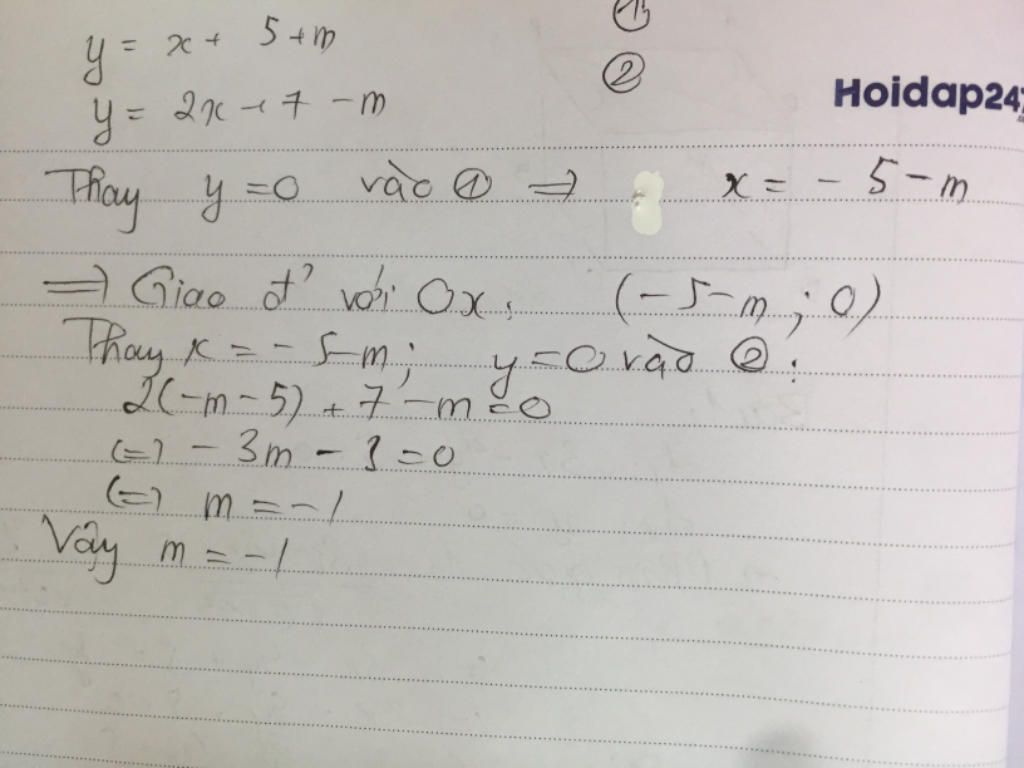 y = x + 5 + m ①
y = 2x + 7 - m ②
Hoidap247
Thay y = 0 vào ① => x = - 5 - m
=> Giao đ' với Ox: (- 5 - m ; 0)
Thay x = - 5 - m ; y = 0 vào ② :
2(-m - 5) + 7 - m = 0
(=) - 3m - 3 = 0
(=) m = - 1
Vậy m = - 1